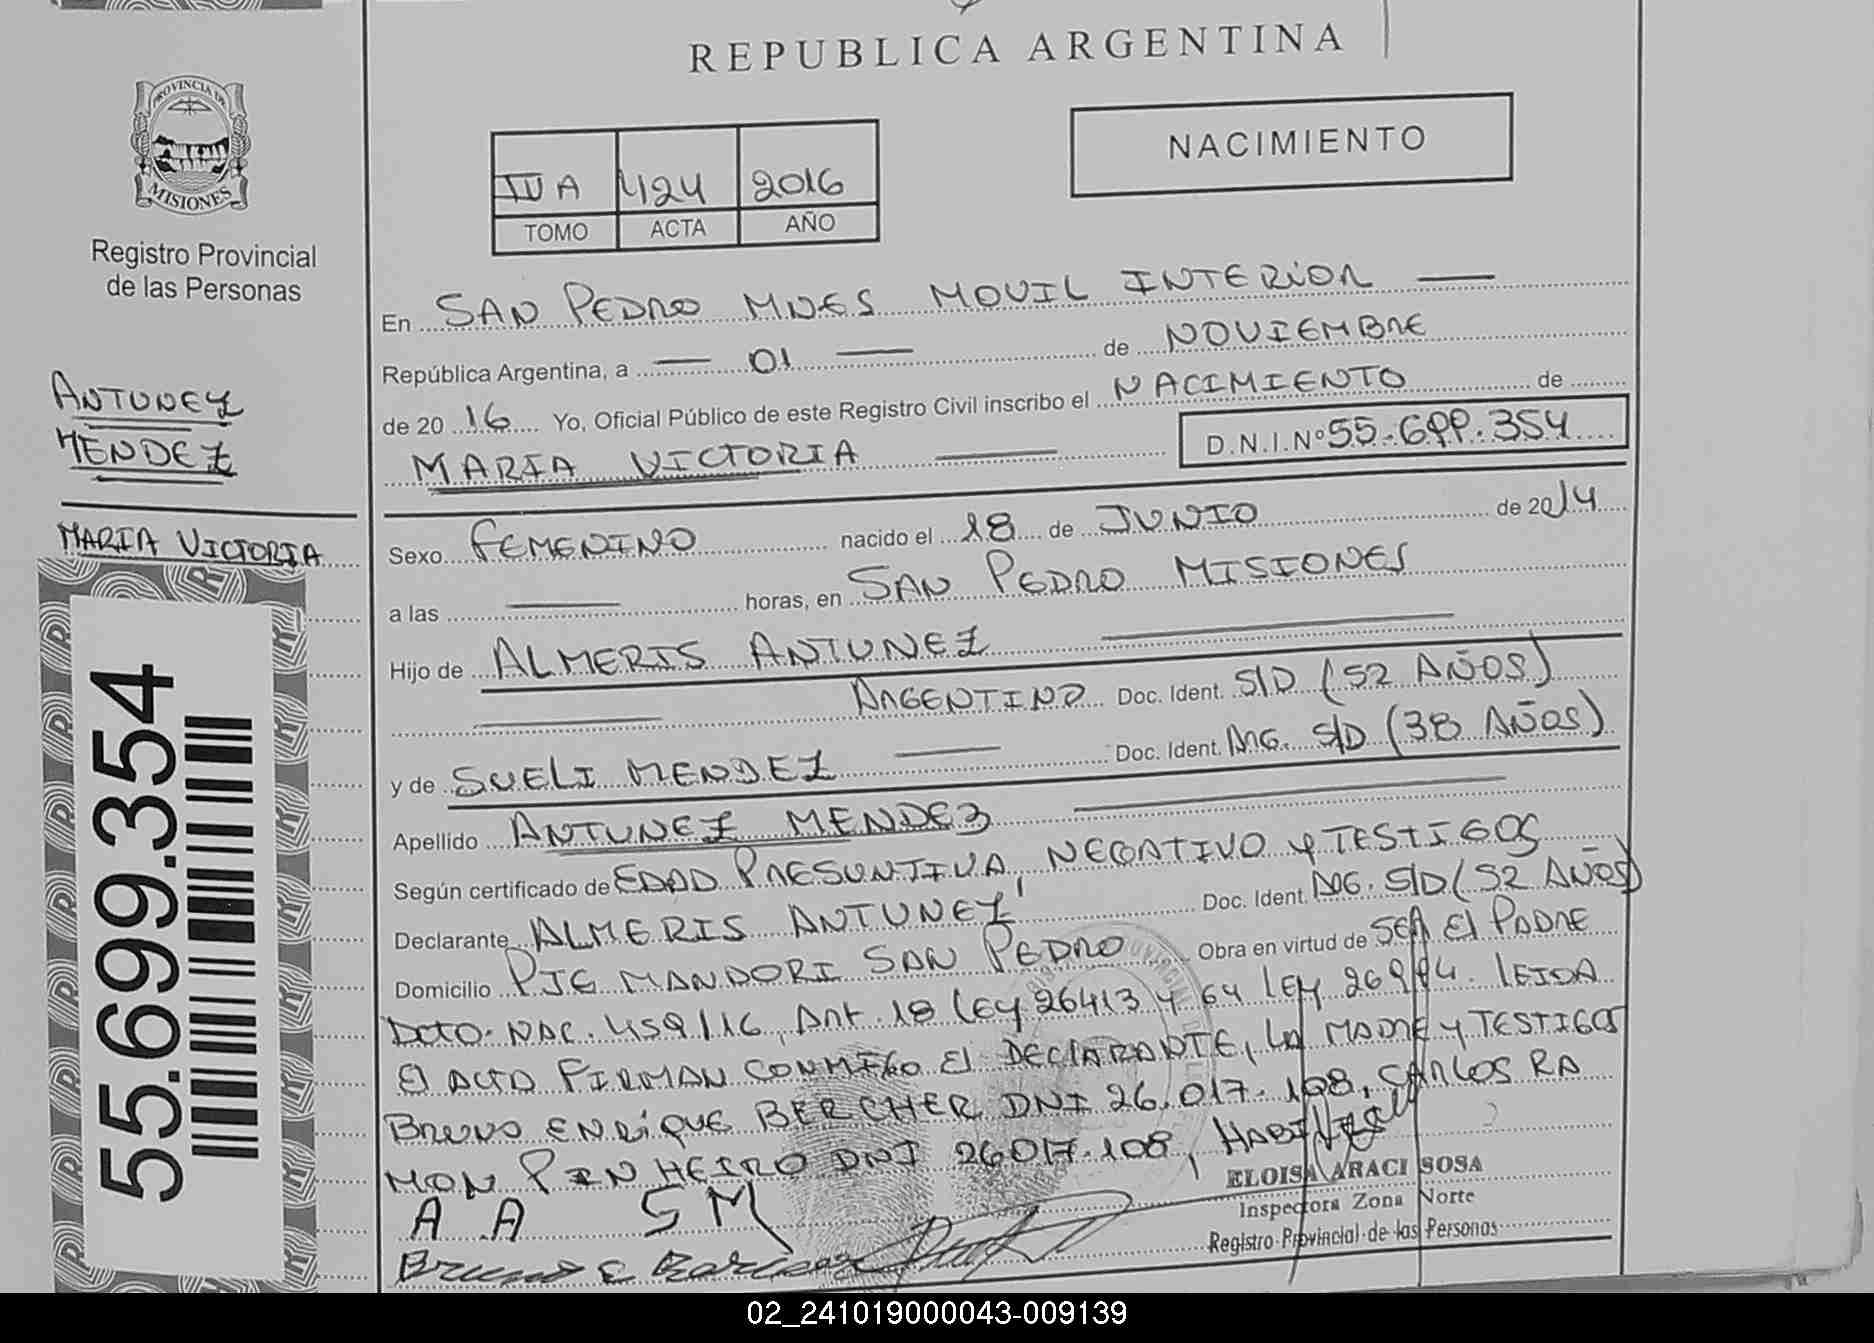 REPUBLICA ARGENTINA
PROVINCIA DE
MISIONES
Registro Provincial
de las Personas
NACIMIENTO
IV A 424 2016
TOMO ACTA AÑO
ANTUNEZ
MENDEZ
MARIA VICTORIA
55.699.354
En SAN PEDRO MNES MOVIL INTERIOR
República Argentina, a 01 de NOVIEMBRE
de 20 16 Yo, Oficial Público de este Registro Civil inscribo el NACIMIENTO de
MARIA VICTORIA D.N.I.Nº 55.699.354
Sexo FEMENINO nacido el 18 de JUNIO de 2014
a las horas, en SAN PEDRO MISIONES
Hijo de ALMERIS ANTUNEZ
ARGENTINO Doc. Ident. S/D (52 AÑOS)
y de SUELI MENDEZ Doc. Ident. ARG. S/D (38 AÑOS)
Apellido ANTUNEZ MENDEZ
Según certificado de EDAD PRESUNTIVA, NEGATIVO y TESTIGOS
Declarante ALMERIS ANTUNEZ Doc. Ident. ARG. S/D (52 AÑOS)
Domicilio PJE MANDORI SAN PEDRO Obra en virtud de SER El PADRE
Dcto. NAC. 459/16, Art. 18 Ley 26413 y 64 LEY 26994. LEIDA
El ACTA FIRMAN CONMIGO El DECLARANTE, LA MADRE y TESTIGOS
BRUNO ENRIQUE BERCHER DNI 26.017.108, CARLOS RA
MON PINHEIRO DNI 26017.108,
A A S M
ELOISA ARACI SOSA
Inspectora Zona Norte
Registro Provincial de las Personas
Bruno E
02_241019000043-009139